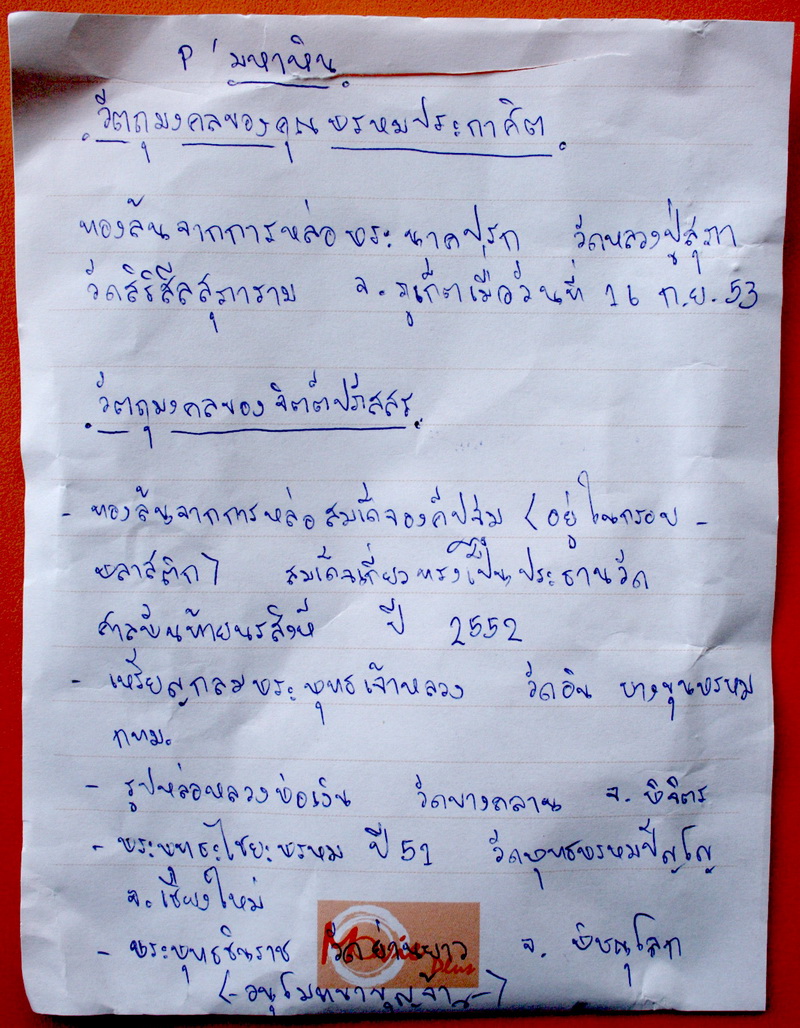 P'มหาหิน
วัตถุมงคลของคุณพรหมประกาศิต
ทองล้นจากการหล่อพระนาคปรก วัดหลวงปู่สุภา
วัดสิริสีลสุภาราม จ.ภูเก็ตเมื่อวันที่ 16 ก.ย. 53
วัตถุมงคลของจิตต์ปภัสสร
- ทองล้นจากการหล่อสมเด็จองค์ปฐม (อยู่ในกรอบ -
พลาสติก) สมเด็จเกี่ยวทรงเป็นประธานวัด
ศาลพันท้ายนรสิงห์ ปี 2552
- เหรียญกลมพระพุทธเจ้าหลวง วัดอิน บางขุนพรหม
กทม.
- รูปหล่อหลวงพ่อเงิน วัดบางคลาน จ. พิจิตร
- พระพุทธะไชยะพรหม ปี 51 วัดพุทธพรหมปัญโญ
จ.เชียงใหม่
- พระพุทธชินราช วัดย่านยาว จ. พิษณุโลก
(-อนุโมทนาบุญจ้า-)
plus